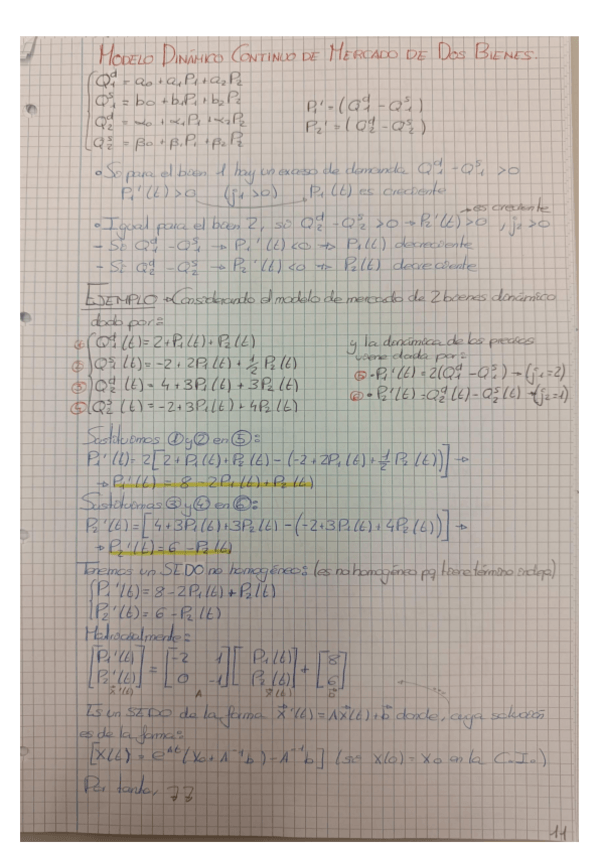 MODELO DINÁMICO CONTINUO DE MERCADO DE DOS BIENES.
Q₁ᵈ = a₀ + a₁P₁ + a₂P₂
Q₁ˢ = b₀ + b₁P₁ + b₂P₂ P₁' = (Q₁ᵈ - Q₁ˢ)
Q₂ᵈ = α₀ + α₁P₁ + α₂P₂ P₂' = (Q₂ᵈ - Q₂ˢ)
Q₂ˢ = β₀ + β₁P₁ + β₂P₂
• Si para el bien 1 hay un exceso de demanda Q₁ᵈ - Q₁ˢ > 0
P₁'(t) > 0 (j₁ > 0) P₁(t) es creciente
→ es creciente
• Igual para el bien 2, si Q₂ᵈ - Q₂ˢ > 0 → P₂'(t) > 0, j₂ > 0
- Si Q₁ᵈ - Q₁ˢ → P₁'(t) < 0 → P₁(t) decreciente
- Si Q₂ᵈ - Q₂ˢ → P₂'(t) < 0 → P₂(t) decreciente
EJEMPLO → Considerando el modelo de mercado de 2 bienes dinámico
dado por:
① Q₁ᵈ(t) = 2 + P₁(t) + P₂(t) y la dinámica de los precios
② Q₁ˢ(t) = -2 + 2P₁(t) + 1/2 P₂(t) viene dada por:
③ Q₂ᵈ(t) = 4 + 3P₁(t) + 3P₂(t) ⑤ • P₁'(t) = 2(Q₁ᵈ - Q₁ˢ) → (j₁=2)
④ Q₂ˢ(t) = -2 + 3P₁(t) + 4P₂(t) ⑥ • P₂'(t) = Q₂ᵈ(t) - Q₂ˢ(t) → (j₂=1)
Sustituimos ① y ② en ⑤:
P₁'(t) = 2[2 + P₁(t) + P₂(t) - (-2 + 2P₁(t) + 1/2 P₂(t))] →
→ P₁'(t) = 8 - 2P₁(t) + P₂(t)
Sustituimos ③ y ④ en ⑥:
P₂'(t) = [4 + 3P₁(t) + 3P₂(t) - (-2 + 3P₁(t) + 4P₂(t))] →
→ P₂'(t) = 6 - P₂(t)
Tenemos un SEDO no homogéneo: (es no homogéneo pq tiene término indep)
P₁'(t) = 8 - 2P₁(t) + P₂(t)
P₂'(t) = 6 - P₂(t)
Matricialmente:
[P₁'(t)] = [-2 1] [P₁(t)] + [8]
[P₂'(t)] [0 -1] [P₂(t)] [6]
x⃗'(t) A x⃗(t) b⃗
Es un SEDO de la forma x⃗'(t) = Ax⃗(t) + b⃗ donde, cuya solución
es de la forma:
[X(t) = eᴬᵗ(X₀ + A⁻¹b) - A⁻¹b] (si X(0) = X₀ en la C.I.)
Por tanto, ??
11